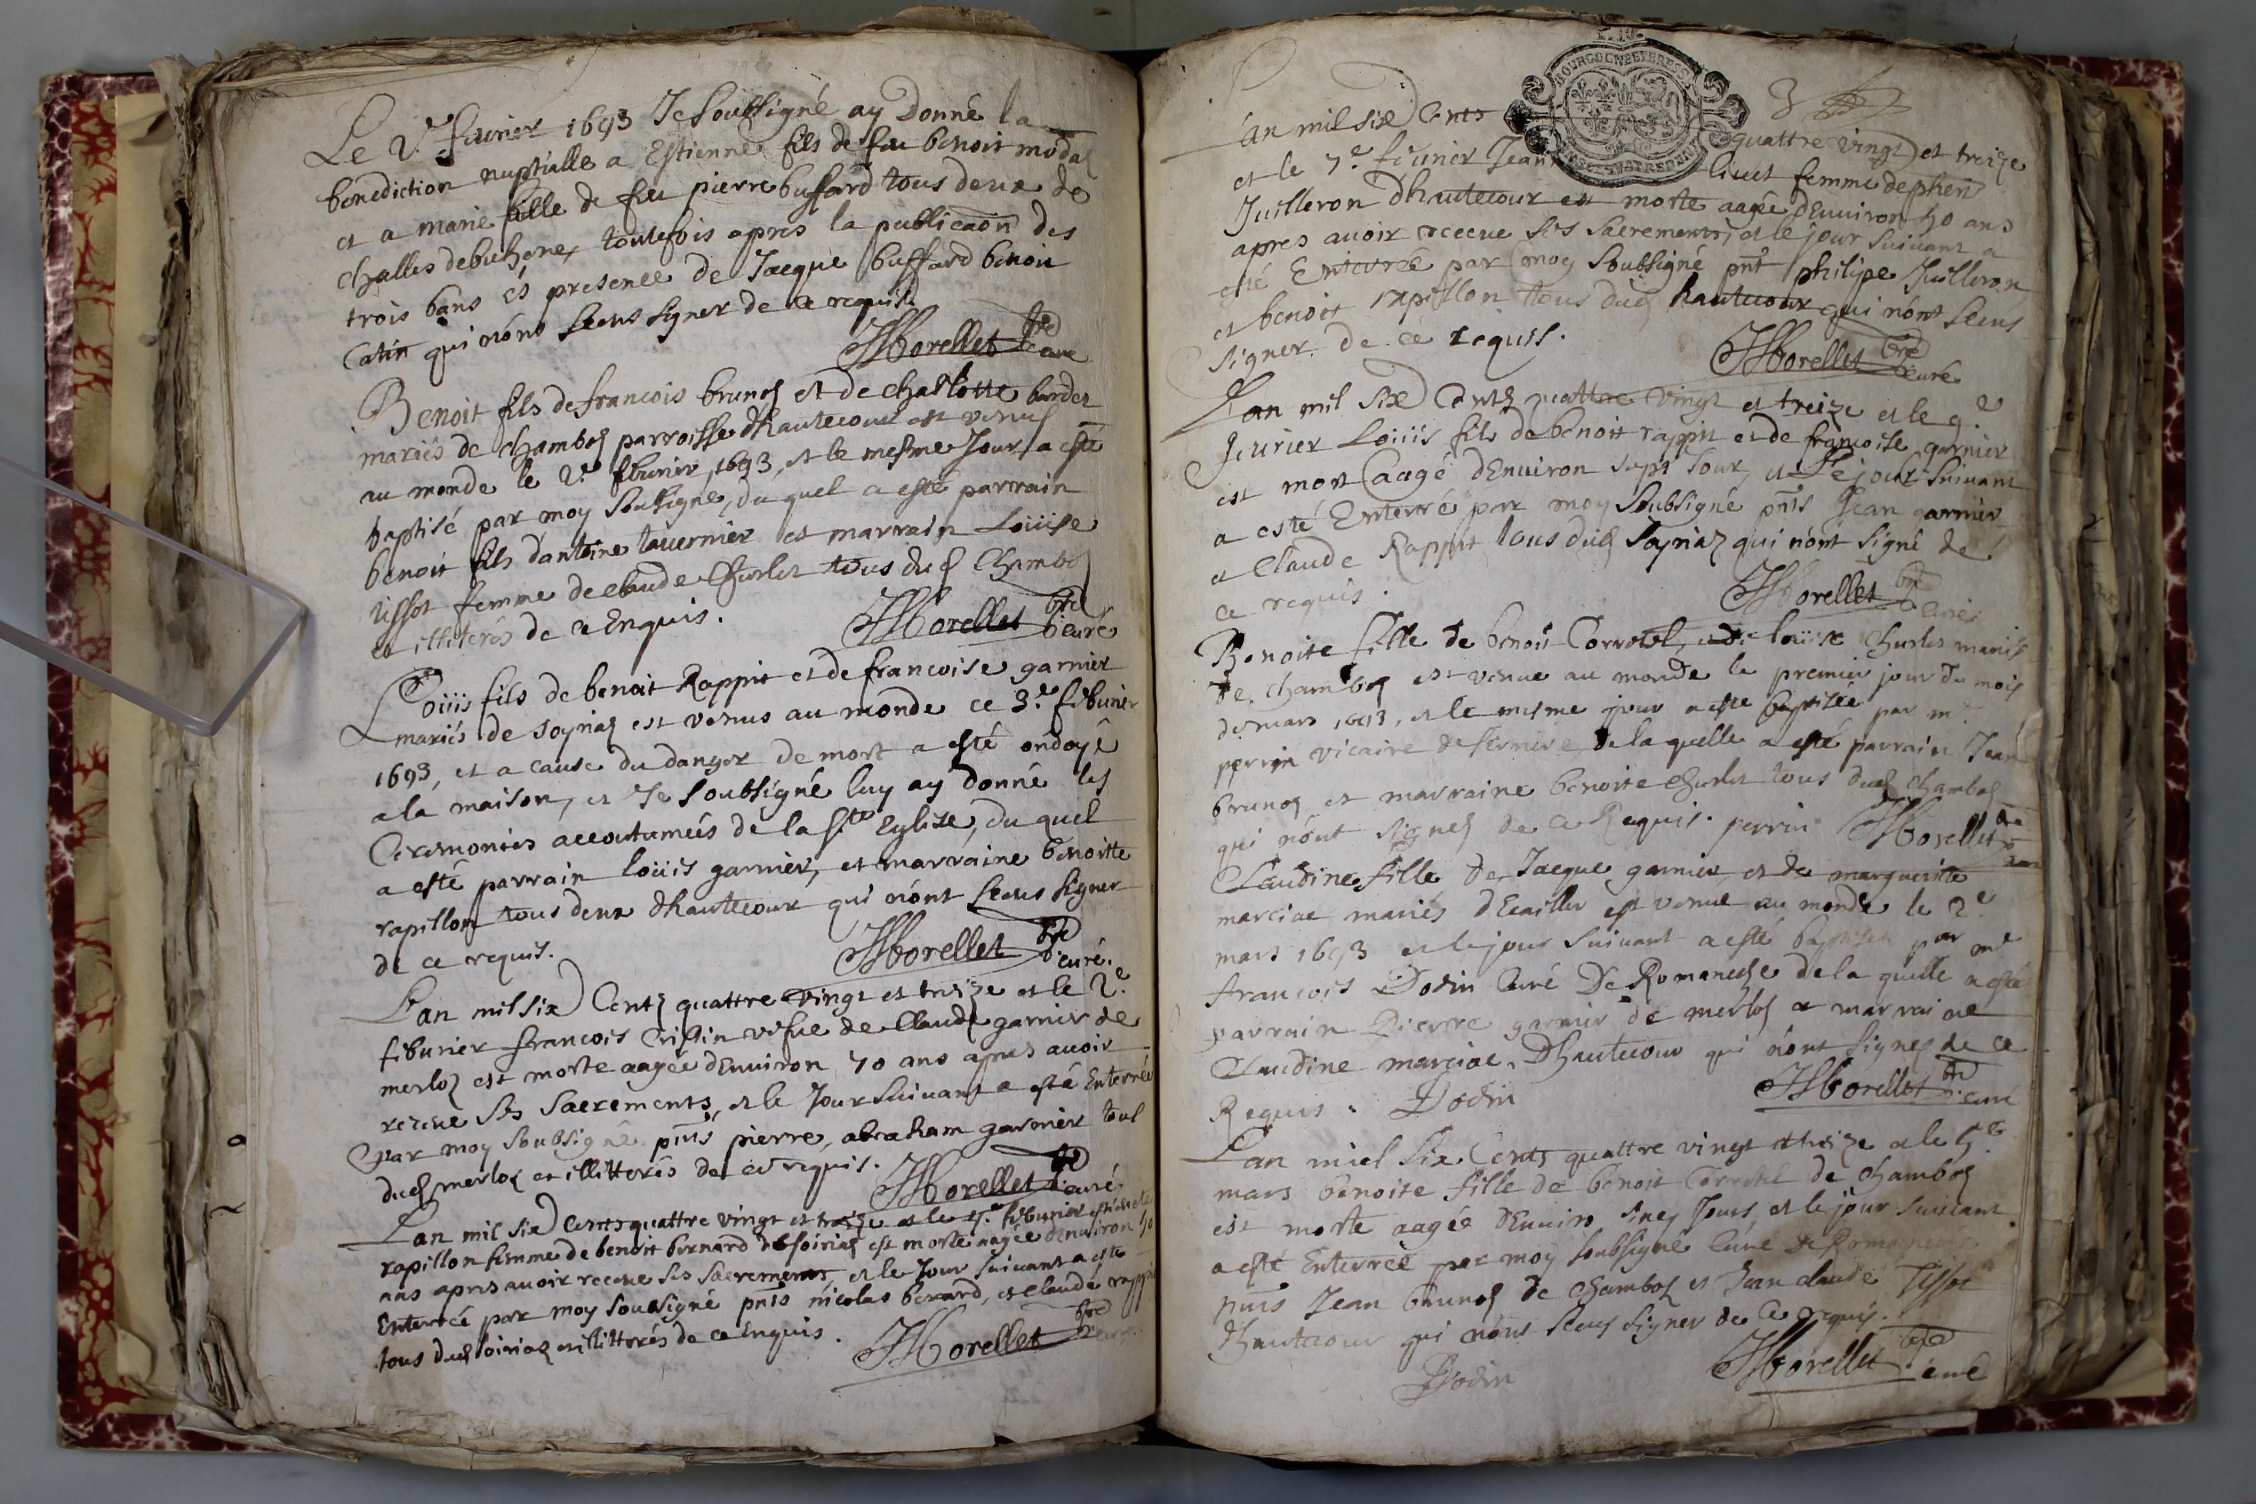 Le 2.e feurier 1693 Je soubsigné ay donné la
benediction nuptialle a Estienne fils de feu benoit modas
et a marie fille de feu pierre buffard tous deux de
challes debuhene, toutefois apres la publicaon des
trois bans és presence de Jacque buffard benoit
Catin qui nónt sceus signer de ce requis
JMorellet bre curé
Benoit fils de francois brunos et de charlotte bordet
mariés de chambos parroisse dhautecour est venus
au monde le 2.e feburier 1693, et le mesme Jour a esté
baptisé par moy soussigné, du quel a esté parrain
benoit fils dantoine tauernier et marrain Loüise
tissot femme de claude Churlet tous dud Chambos
et illiterés de ce Enquis.
JMorellet bre curé
Loüis fils de benoit Rappit et de francoise garnier
mariés de soyrias est venus au monde ce 3.e feburier
1693, et a cause du danger de mort a esté ondoyé
a la maison, et Je soubsigné luy ay donné les
Ceremonies accoutumées de la ste Eglize, du quel
a esté parrain loüis garnier, et marraine benoitte
rapillon tous deux dhautecour qui nónt sceus signer
de ce requis.
JMorellet bre curé.
Lan mil six Cents quattre vingt et treize et le 2.e
feburier francois Crispin vefue de Claude garnier de
merlos est morte aagée dEnuiron 70 ans apres auoir
receue ses sacrements, et le Jour suiuant a esté Enterrée
par moy soubsigné pnts pierre, abraham garnier tous
dud merlos et illitterés de ce requis.
JMorellet bre curé
Lan mil six Cents quattre vingt et treize et le
feburier
rapillon femme de benoit bernard de soirias est morte aagée denuiron 50
ans apres auoir receue ses sacrements, et le Jour suiuant a esté
Enterrée par moy soussigné pnts nicolas berard, et claude rappit
tous dud soirias et illitterés de ce Enquis.
JMorellet bre curé
BOURGOGNE ET BRESSE
3
Lan mil six Cents quattre vingt et treize
et le 7.e feurier Jean liuet femme de phen
Juilleron dhautecour est morte aagée dEnuiron 50 ans
apres auoir receue ses sacrements, et le jour suiuant a
esté Enterrée par moy soubsigné pnt philipe Juilleron
et benoit rapillon tous dud hautecour qui nónt sceus
signer de ce requis.
JMorellet bre curé
Lan mil six Cents quattre vingt et treize et le 9.e
feurier Loüis fils de benoit rappit et de francoise garnier
est mort aagé dEnuiron sept Jour, et le jour suiuant
a esté Enterré par moy soubsigné pnts Jean garnier
et Claude Rappit tous dud soyrias qui nónt signé de
ce requis.
JMorellet bre curé
Benoite fille de benoit Corretel, et de loüise Churlet mariés
de chambos est venue au monde le premier jour du mois
de mars 1693, et le mesme jour a esté baptisée par mr
perrin vicaire de de la quelle a esté parrain Jean
brunos et marraine benoite churlet tous dud chambos
qui nónt signes de ce Requis. perrin JMorellet bre curé
Claudine fille de Jacque garnier, et de marguerite
marciae mariés dEcaillir est venue au monde le 2.e
mars 1693 et le jour suiuant a esté baptisée par mr
francois Dodin Curé De Romaneche de la quelle a esté
parrain Pierre garnier de merlos et marraine
Claudine marciae Dhautecour qui nónt signes de ce
Requis. Dodin
JMorellet bre curé
Lan miel six Cents quattre vingt et treize et le 5.e
mars benoite fille de benoit Corretel de chambos
est morte aagée dEnuiro sinq Jours, et le jour suiuant
a esté Enterrée par moy soubsigné Curé de Romaneche
pnts Jean brunos de chambos et Jean claude Tissot
dhautecour qui nónt sceus signer de Ce requis.
Dodin
JMorellet bre curé